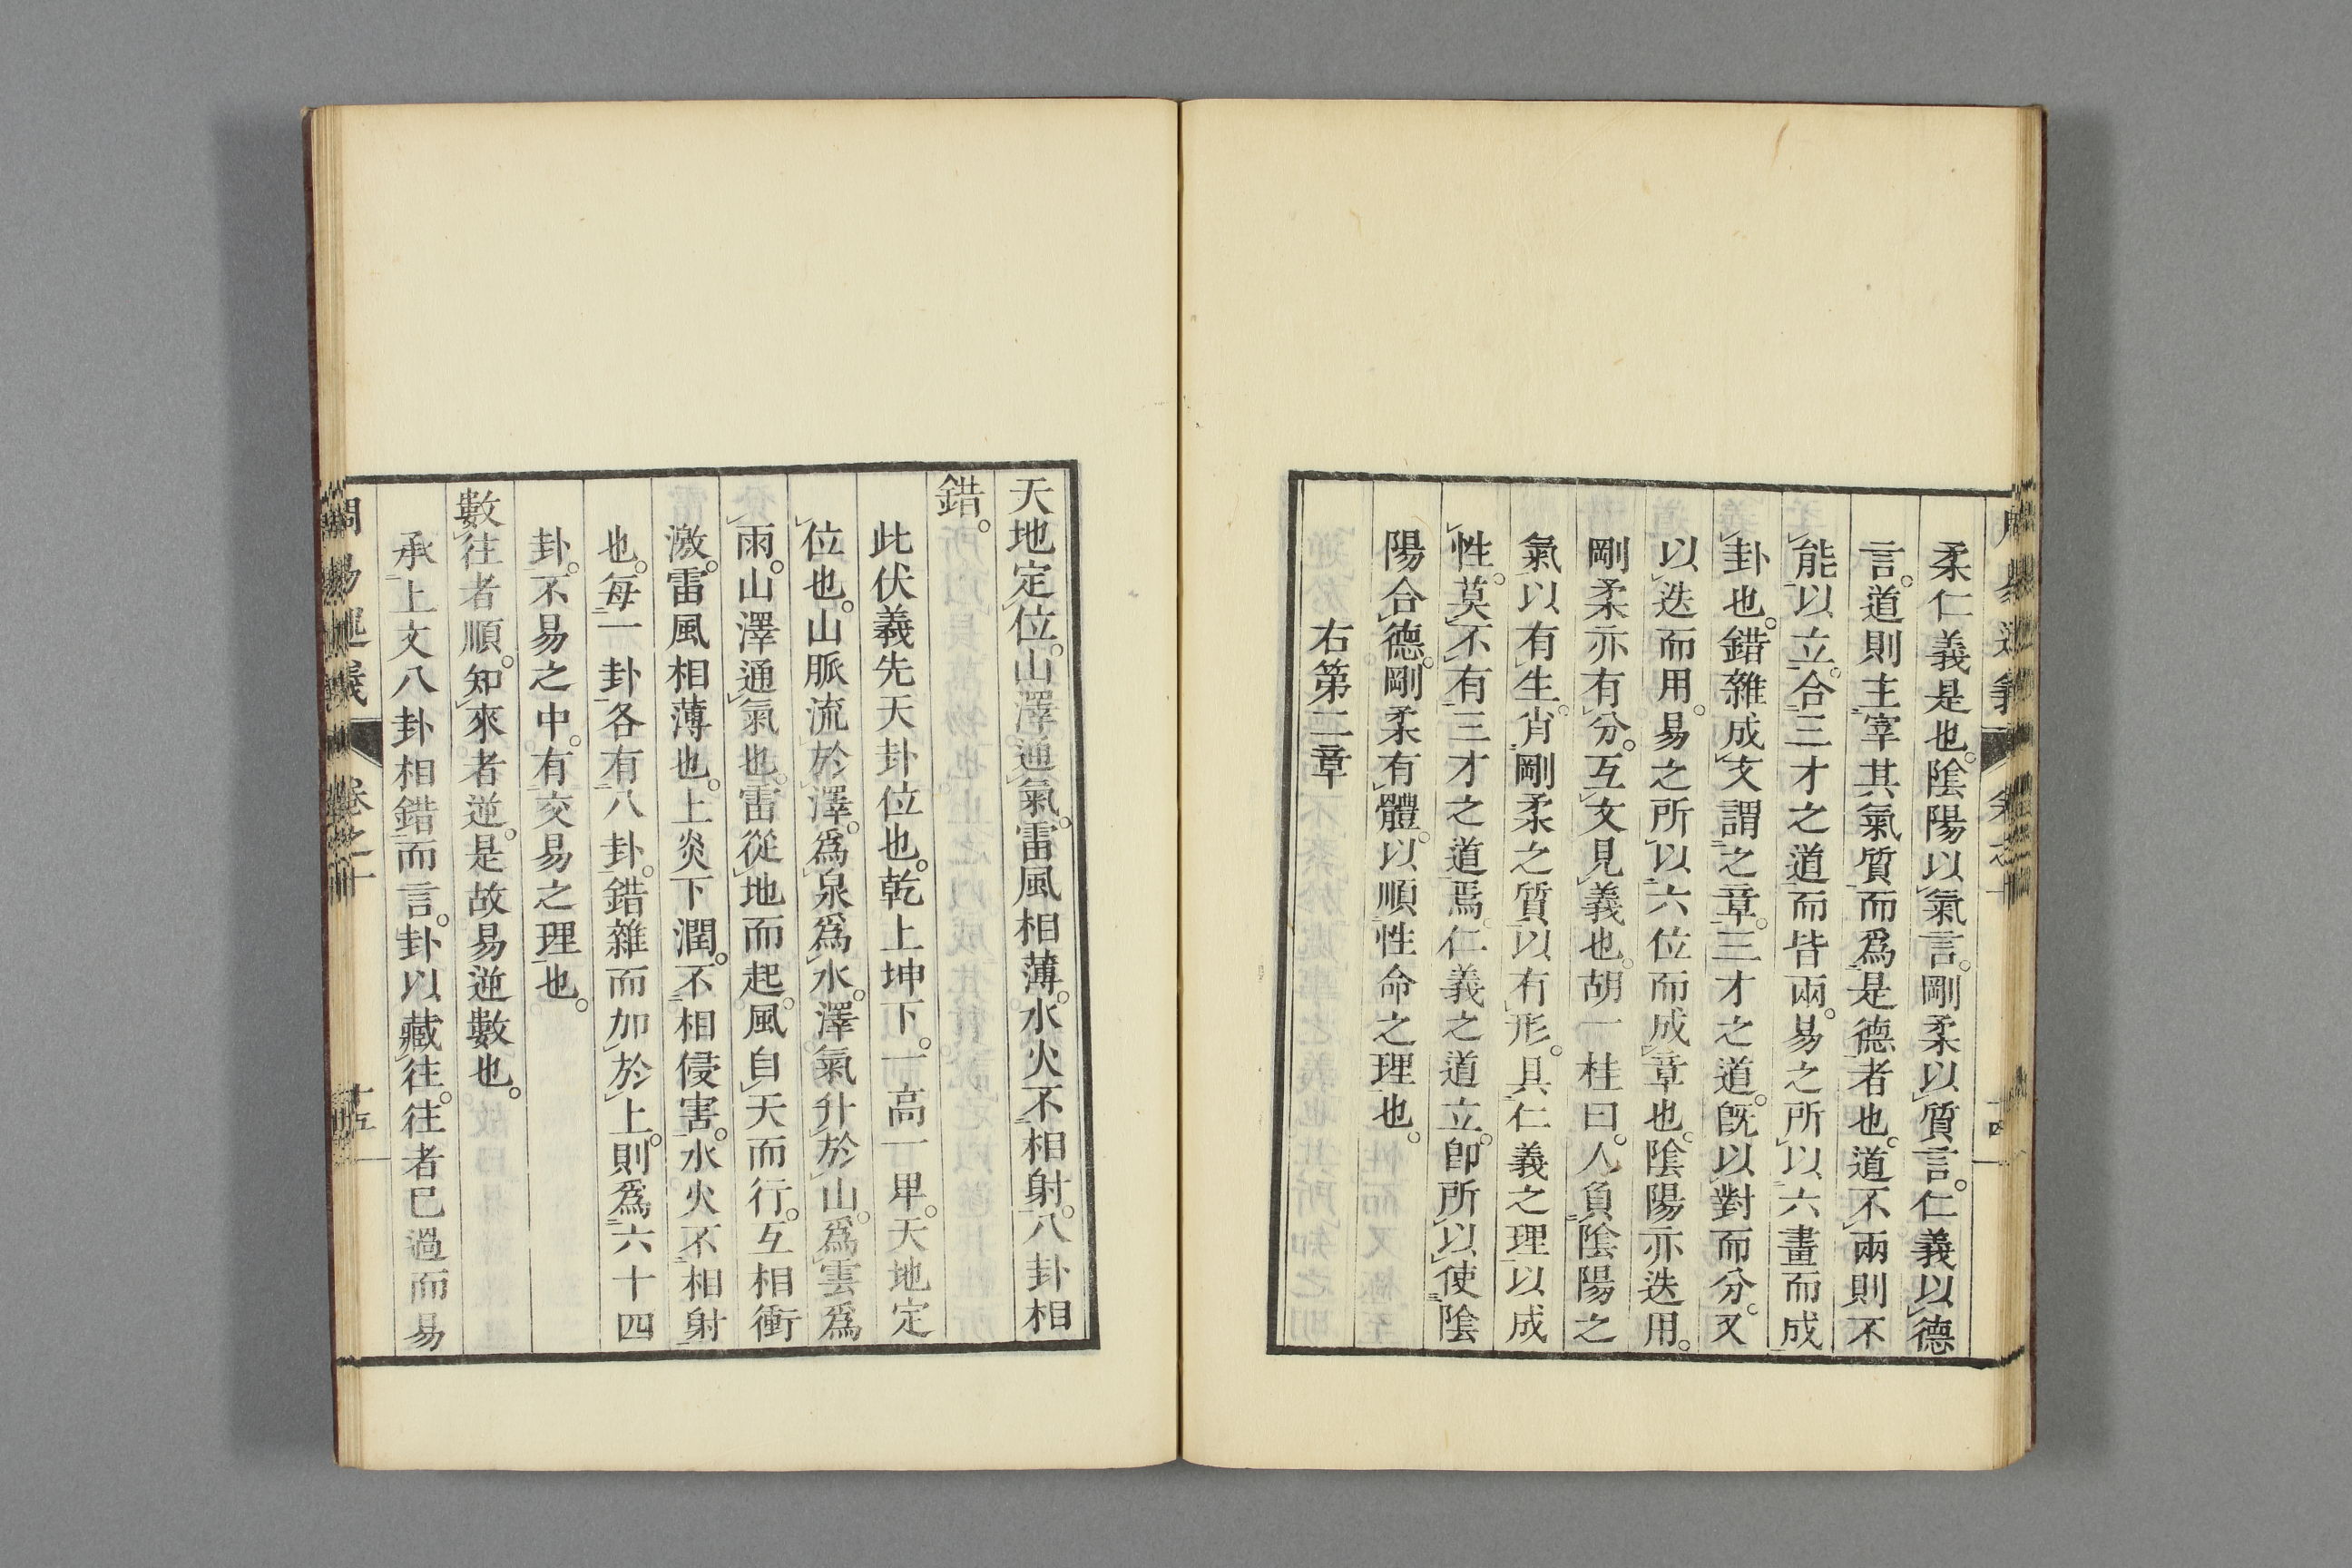 柔仁義是也。陰陽以氣言。剛柔以質言。仁義以德
言。道則主宰其氣質而爲是德者也。道不兩則不
能以立。合三才之道而皆兩。易之所以六畫而成
卦也。錯雜成文謂之章。三才之道。既以對而分。又
以迭而用。易之所以六位而成章也。陰陽亦迭用。
剛柔亦有分。互文見義也。胡一桂曰。人負陰陽之
氣以有生。肖剛柔之質以有形。具仁義之理以成
性。莫不有三才之道焉。仁義之道立。卽所以使陰
陽合德。剛柔有體。以順性命之理也。
右第二章
天地定位。山澤通氣。雷風相薄。水火不相射。八卦相
錯。
此伏羲先天卦位也。乾上坤下。一高一卑。天地定
位也。山脈流於澤。爲泉爲水。澤氣升於山。爲雲爲
雨。山澤通氣也。雷從地而起。風自天而行。互相衝
激。雷風相薄也。上炎下潤。不相侵害。水火不相射
也。每一卦各有八卦。錯雜而加於上。則爲六十四
卦。不易之中。有交易之理也。
數往者順。知來者逆。是故易逆數也。
承上文八卦相錯而言。卦以藏往。往者已過而易
周易逑義 卷之十 十五